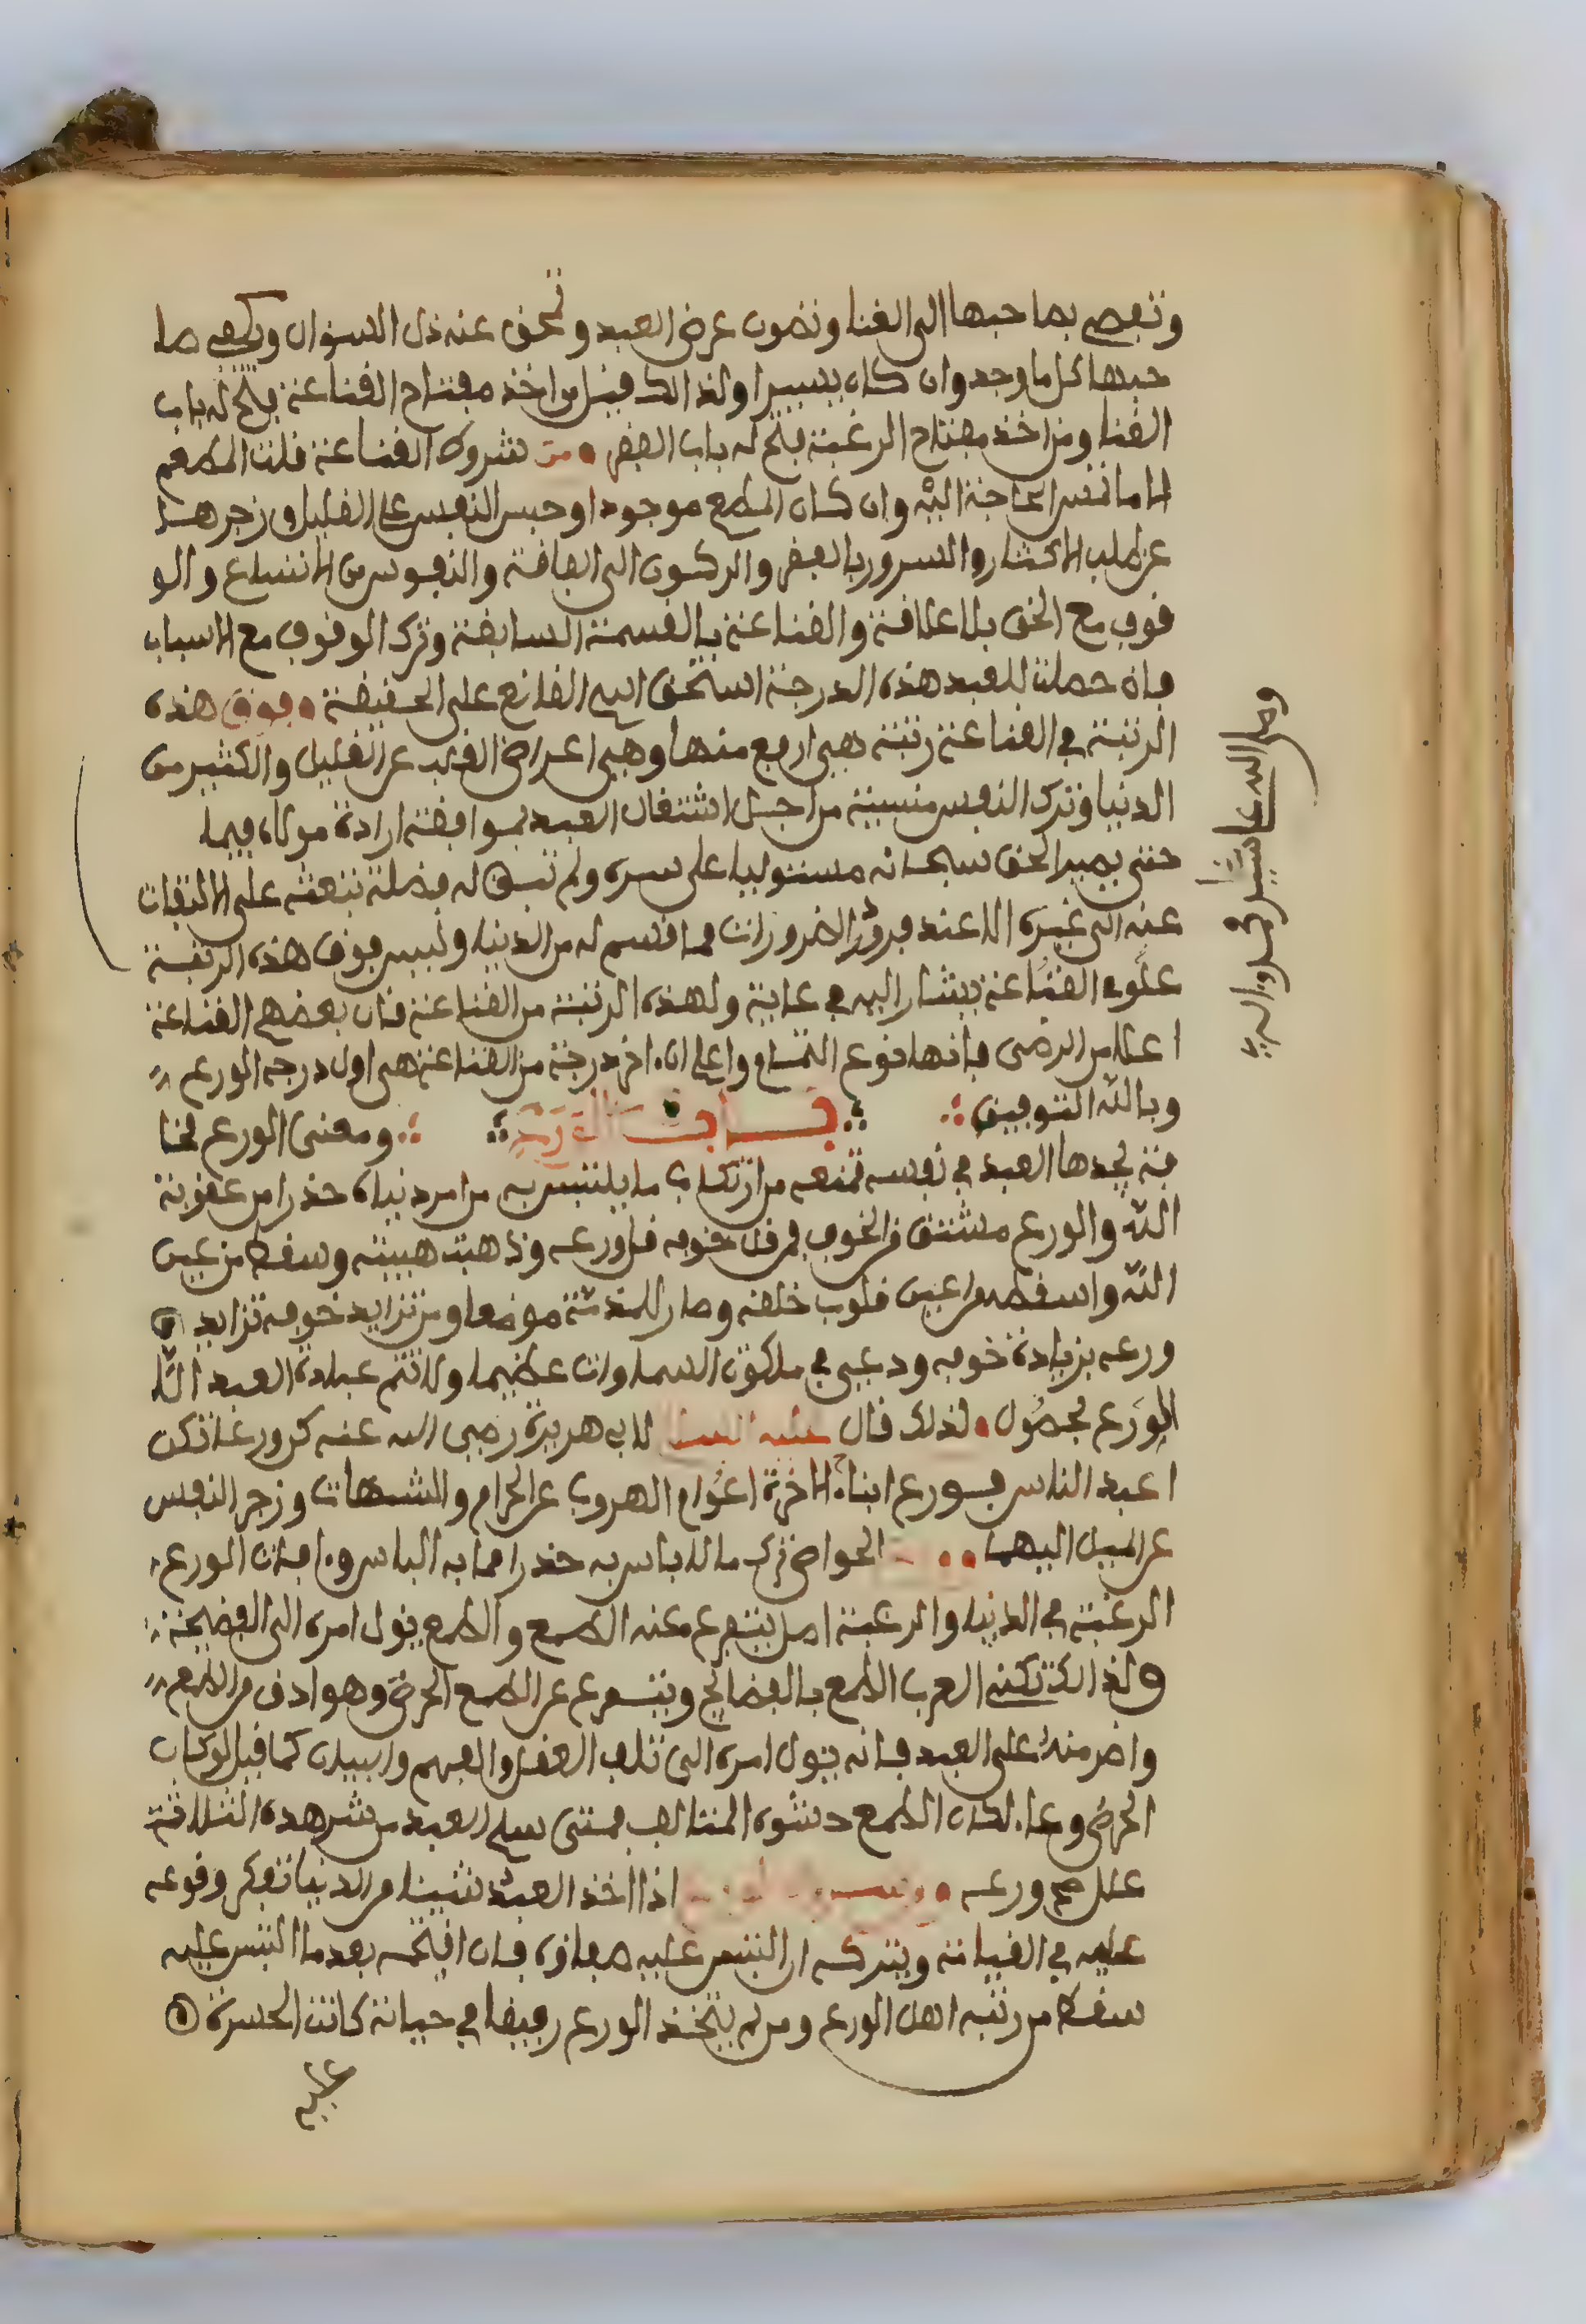 وتفضي بصاحبها الى الغنا وتصون عرض العبد وتحق عنه ذل السؤال ويكفي صا
حبها كل ما وجد وان كان يسيرا ولذالك قيل من اخذ مفتاح القناعة فتح له باب
الغنا ومن اخذ مفتاح الرغبة فتح له باب الفقر ومن شروط القناعة قلت المطعم
الا ما تمس الحاجة اليه وان كان المطمع موجودا وحبس النفس على القليل وزجرها
عن طلب الاكثار والسرور بالفقر والركون الى الفاقة والنفوس من الاتساع والو
قوف مع الحق بلا علاقة والقناعة بالقسمة السابقة وترك الوقوف مع الاسباب
فان حصلت للعبد هذه الدرجة استحق اسم القانع على الحقيقة وفوق هذه
الرتبة في القناعة رتبة هي ارفع منها وهي اعراض القلب عن القليل والكثير من
الدنيا وترك النفس منسية من اجل اشتغال العبد بموافقة ارادة مولاه فيما
حتى يصير الحق سبحانه مستوليا على سره ولم تبق له فضلة تبعثه على الالتفات
عنه الى غيره الا عند فرو الضرورات مما قسم له من الدنيا وليس فوق هذه الرتبة
علو في القناعة يشار اليه في غاية ولهذه الرتبة من القناعة قال بعضهم القناعة
اعلا من الرضى فانها نوع التمام واعلم ان اخر درجة من القناعة هي اول درجة الورع
وبالله التوفيق باب الورع ومعنى الورع مخا
فة يجدها العبد في نفسه تمنعه من ارتكاب ما يلتبس به من امر دنياه حذرا من عقوبة
الله والورع مشتق من الخوف فمن قل خوفه قل ورعه وذهبت هيبته وسقط من عين
الله واسقطه من اعين قلوب خلقه وصار للمذمة موضعا ومن تزايد خوفه تزايد
ورعه بزيادة خوفه ودعي في ملكوت السماوات عظيما ولا تتم عبادة العبد الا
الورع بحصول ولذلك قال عليه السلام لابي هريرة رضي الله عنه كن ورعا تكن
اعبد الناس فورع ابناء الاخرة اعوام الهروب عن الحرام والشبهات وزجر النفس
عن الميل اليهما الخواص ترك ما لا باس به حذرا مما به الباس وافات الورع
الرغبة في الدنيا والرغبة اصل يتفرع عنه الطمع والطمع يئول امره الى الفضيحة
ولذالك تكني العرب الطمع بالفضائح ويتفرع عن الطمع الحرص وهو ادق من الطمع
واضر منه على العبد فانه يئول امره الى تلف العقل والفهم والبيان كما قيل لو كان
الحرص وعاء لكان الطمع حشوه المتالف فمتى سلم العبد من شر هذه الثلاثة
علل صح ورعه اذا اخذ العبد شيئا من الدنيا تفكر وقوعه
عليه في القيامة ويتركه ان التبس عليه صفاؤه فان اقتحمه بعد ما التبس عليه
سقط من رتبة اهل الورع ومن لم يتخذ الورع رفيقا في حياته كانت الحسرة
عليه
وصلى الله على سيدنا محمد واله